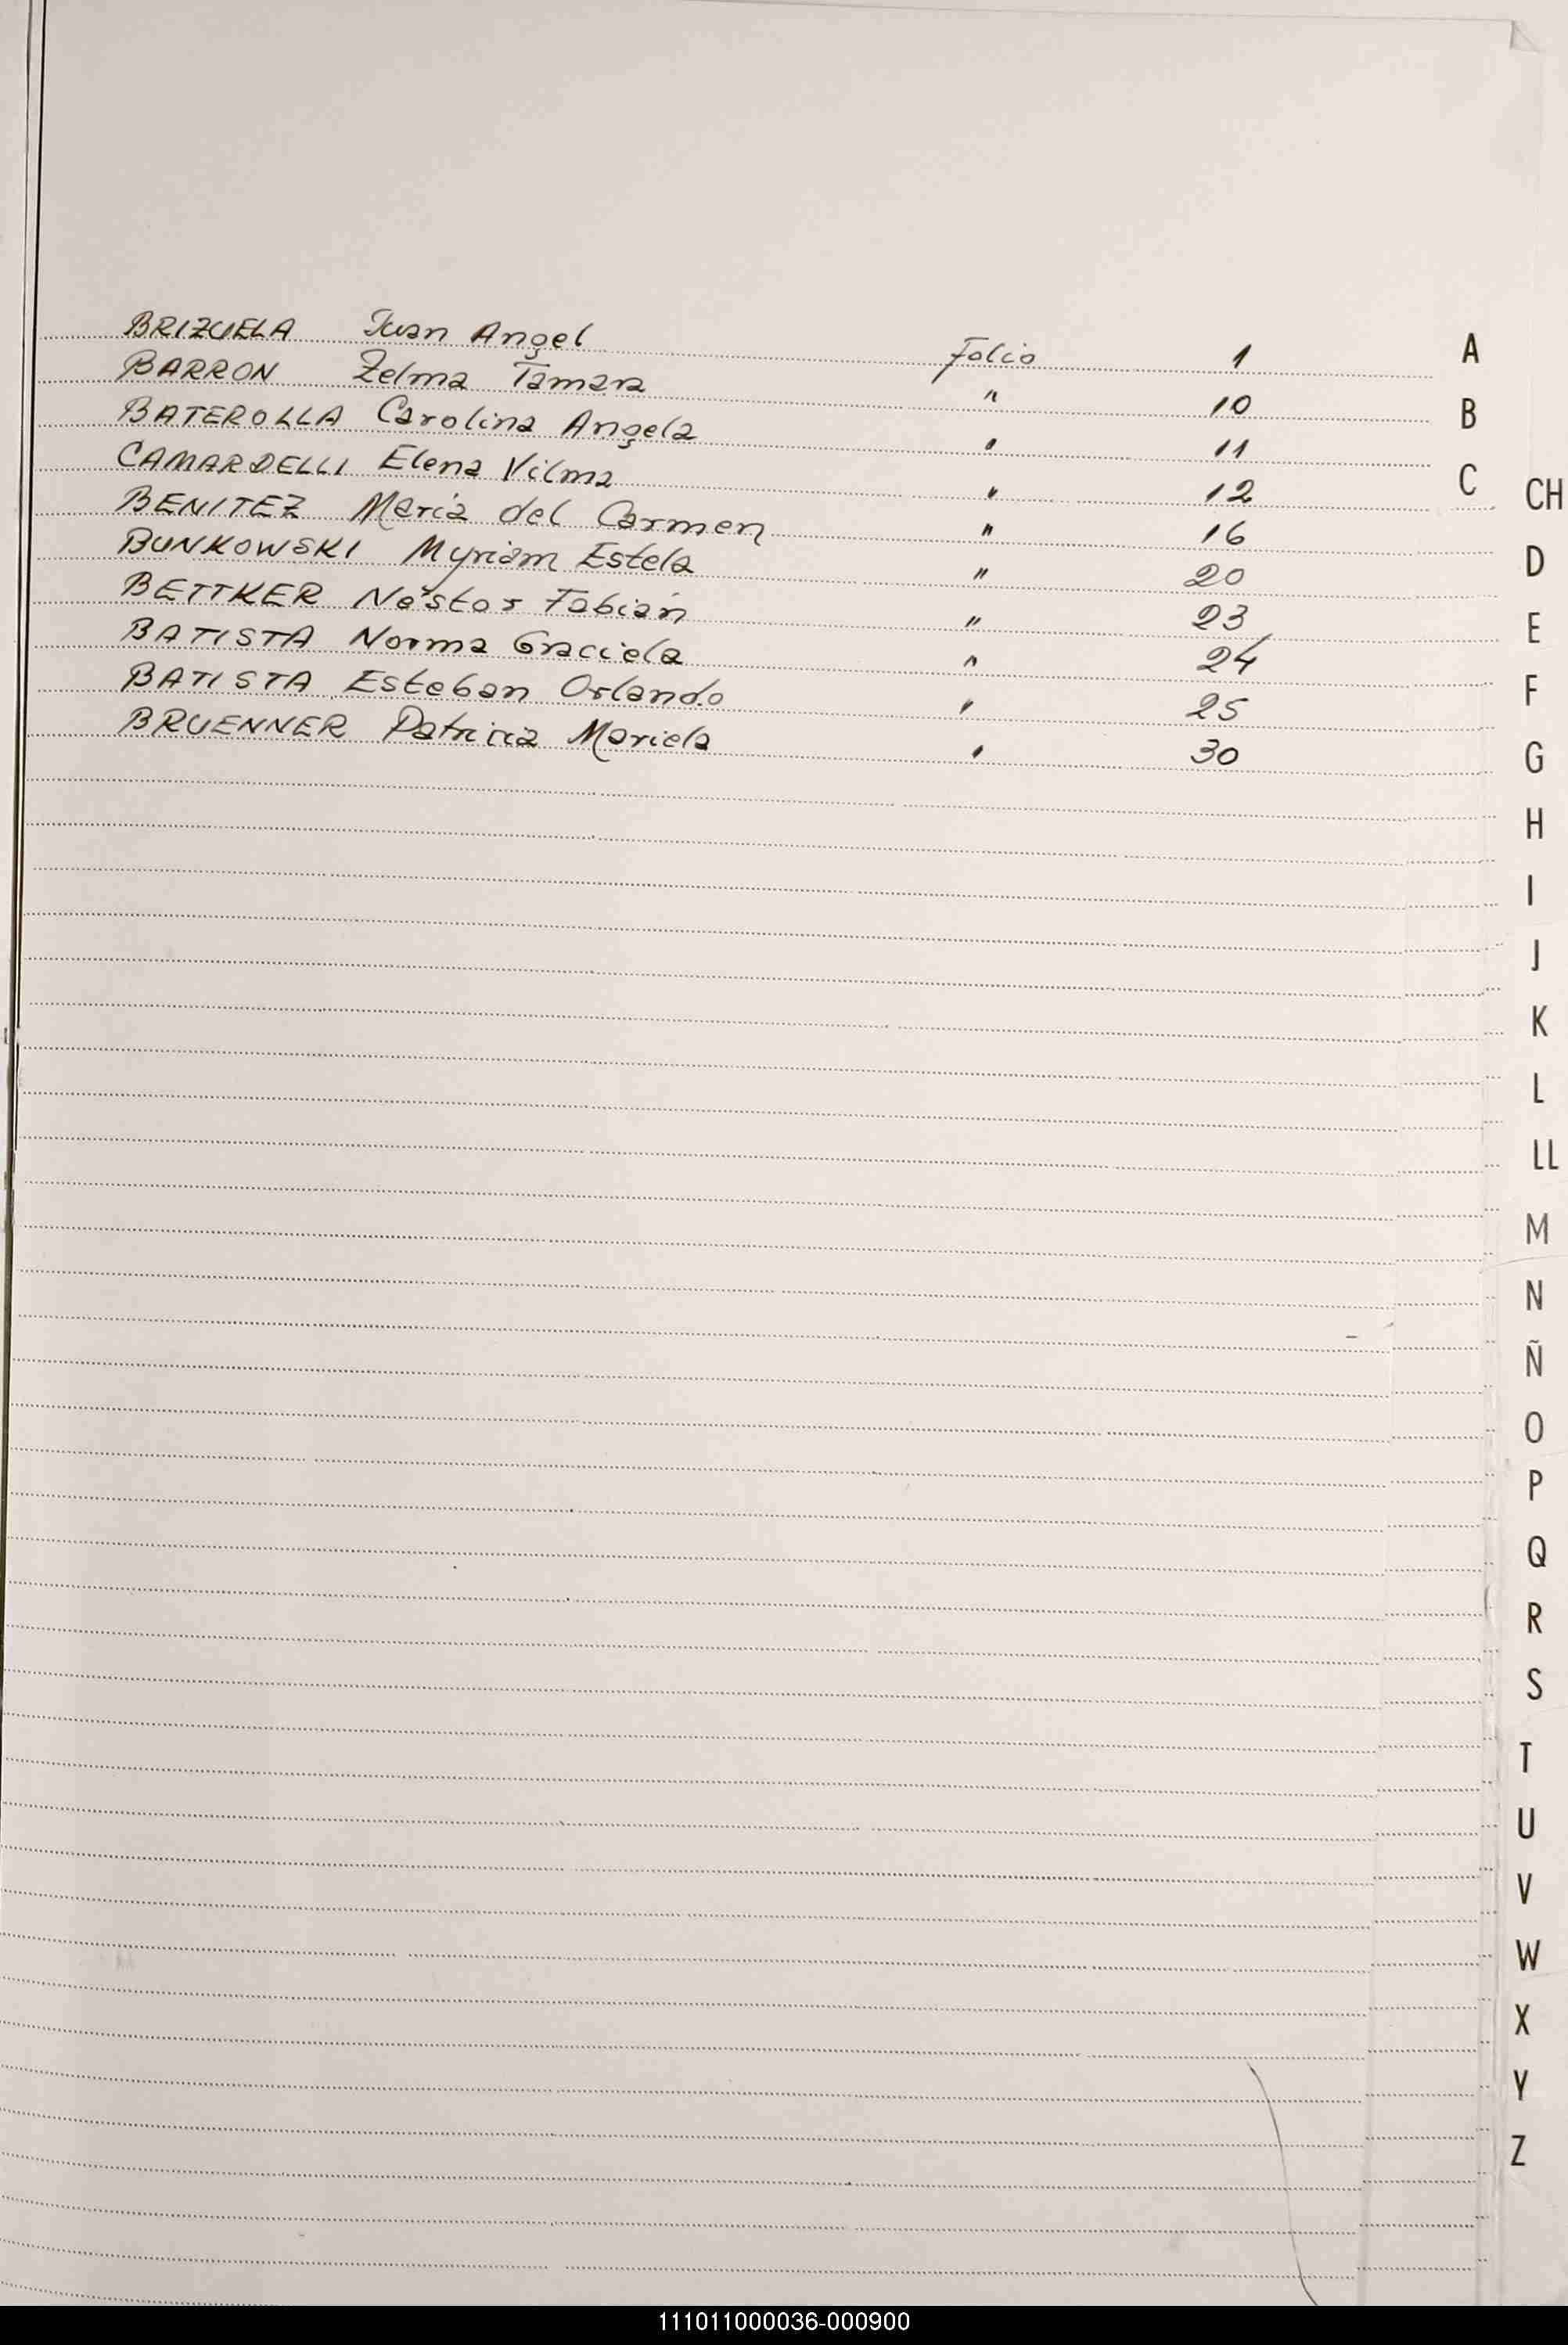 BRIZUELA Juan Angel Folio 1
BARRON Zelma Tamara " 10
BATEROLLA Carolina Angela " 11
CAMARDELLI Elena Vilma " 12
BENITEZ María del Carmen " 16
BUNKOWSKI Myriam Estela " 20
BETTKER Néstor Fabián " 23
BATISTA Norma Graciela " 24
BATISTA Esteban Orlando " 25
BRUENNER Patricia Mariela " 30
A
B
C
CH
D
E
F
G
H
I
J
K
L
LL
M
N
Ñ
O
P
Q
R
S
T
U
V
W
X
Y
Z
111011000036-000900